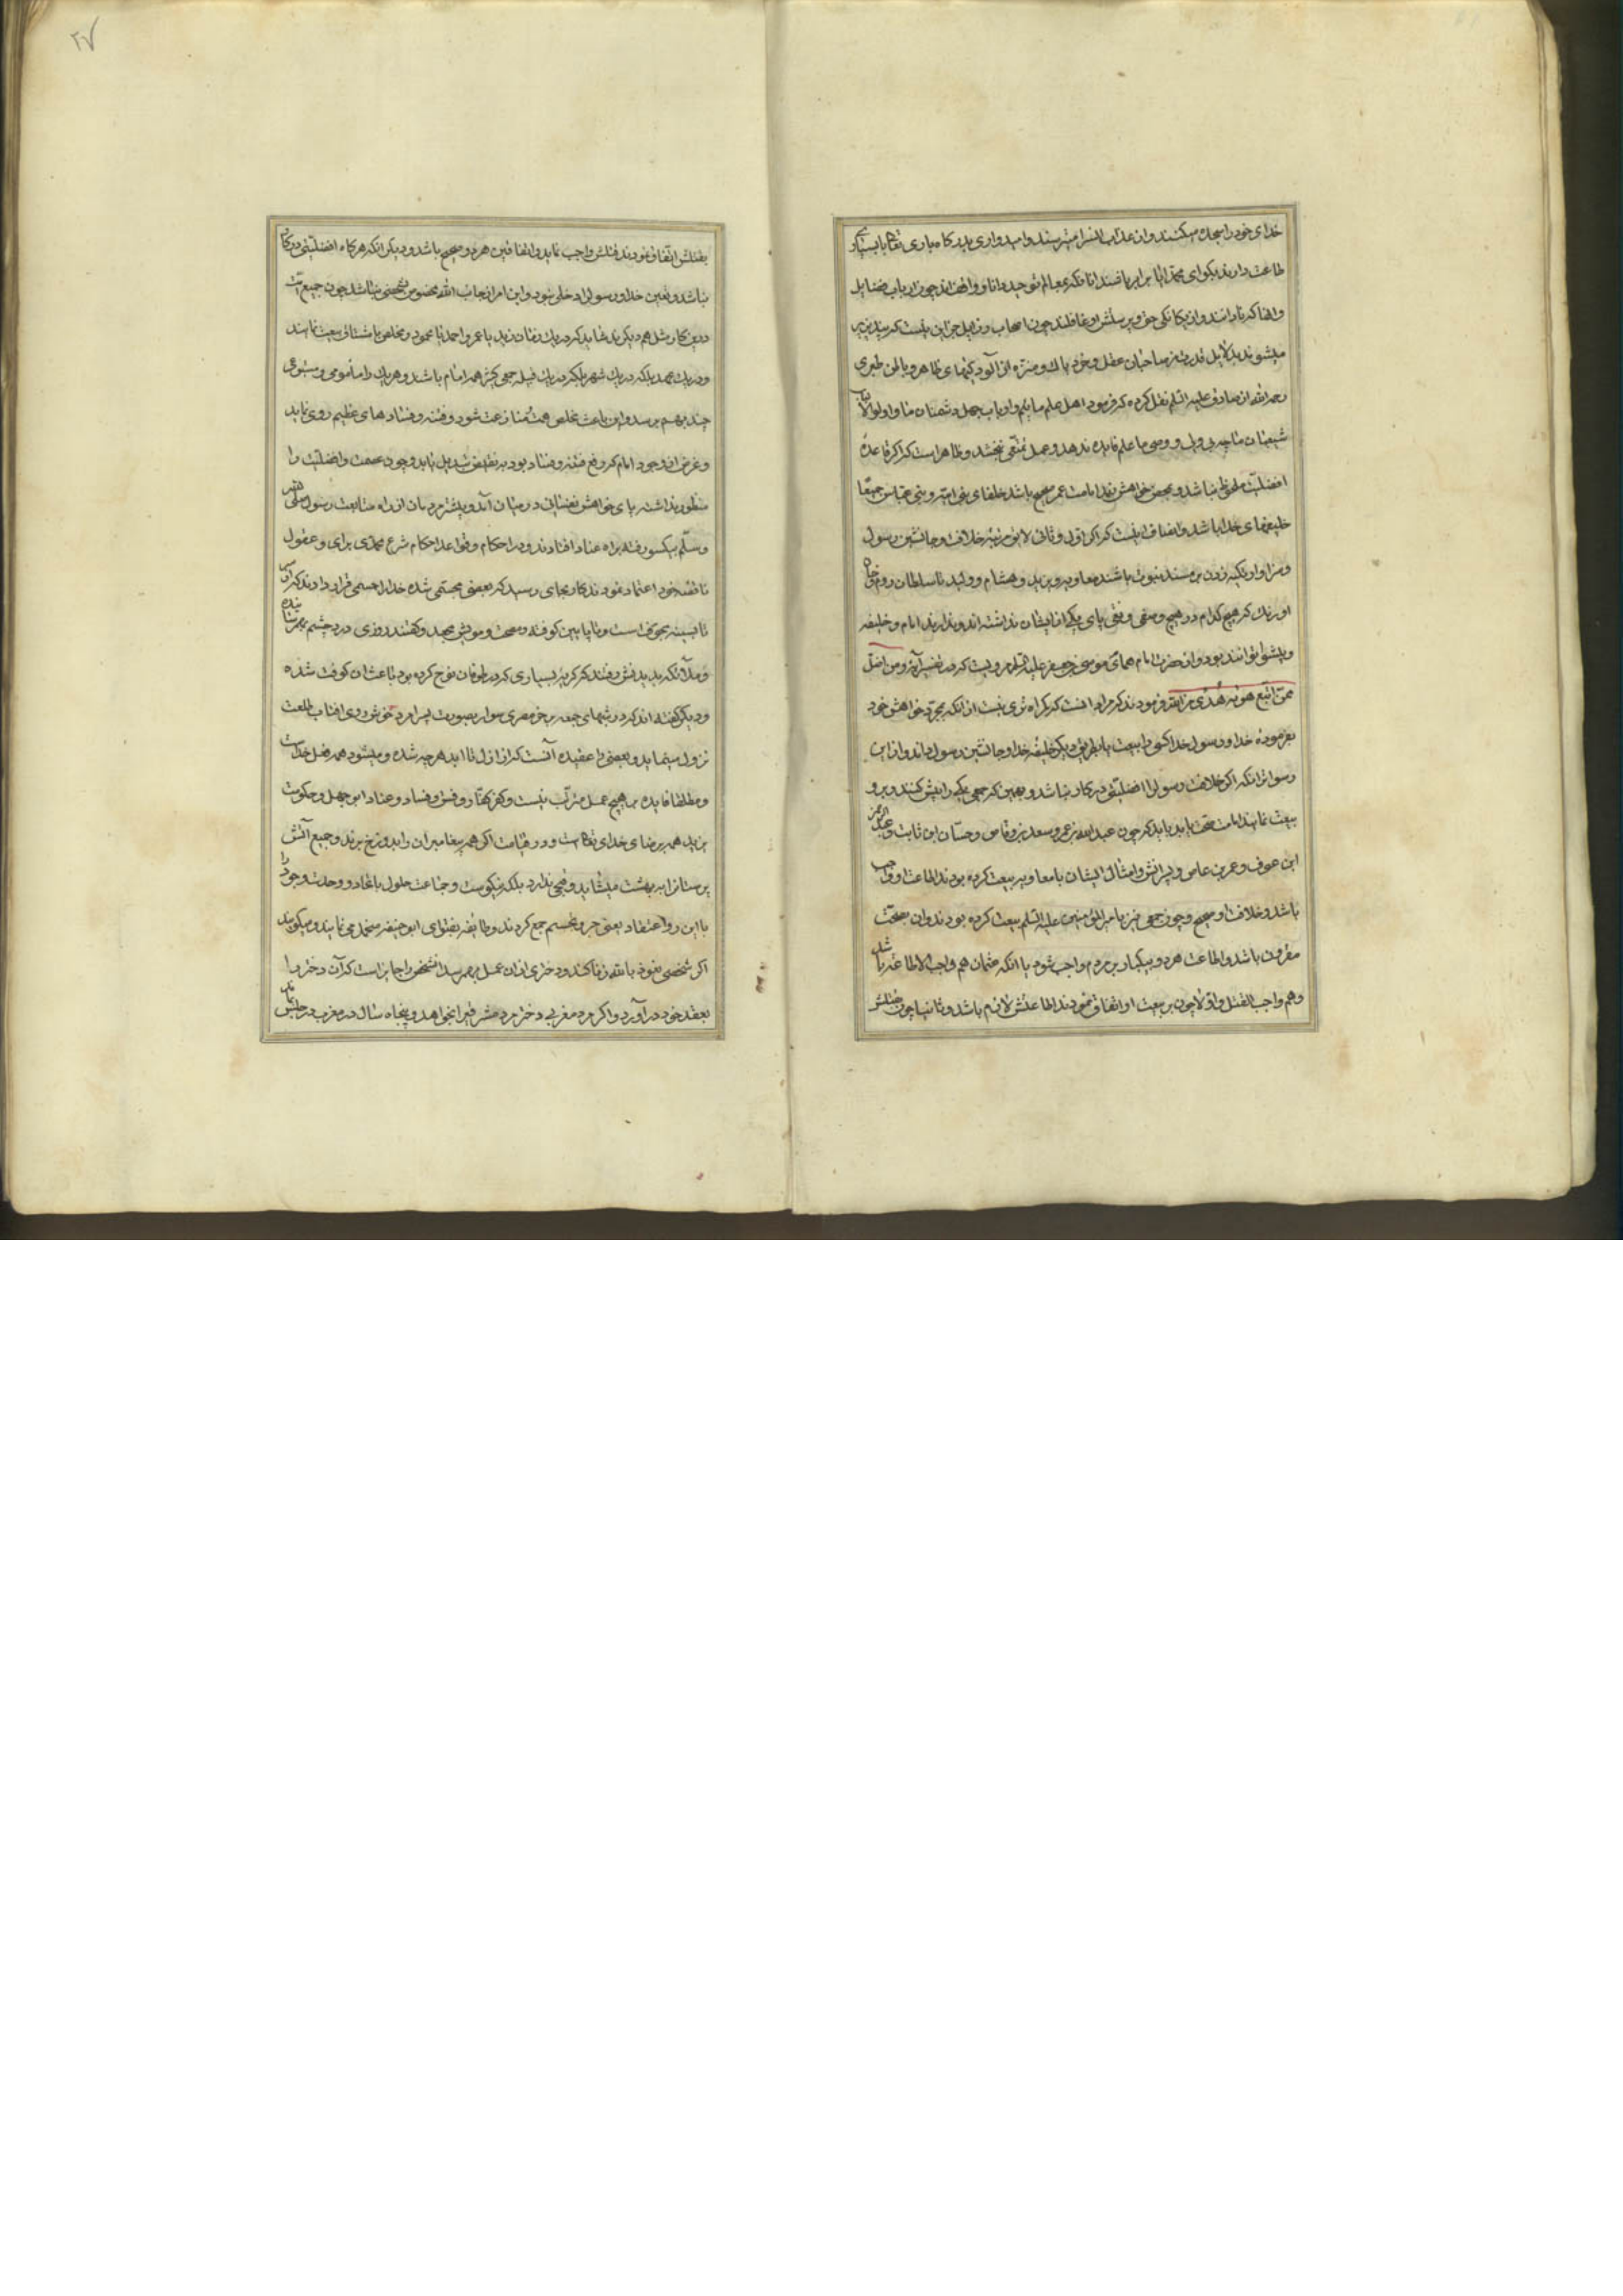 خدای خود را سجده میکنند و از عذاب میترسند و امیدواری بدرکاه باری تعالی
طاعت دارند بکو ای محمد ایا برابر باشند انانکه بعالم توحید دانا و واقف اند چون ارباب فضایل
و انها که نادانند و از یکانکی حق و پرستش او غافلند چون اصحاب رذایل جز این نیست که پند پذیر
میشوند بدلایل قدرت من صاحبان عقل و خرد پاک و منزه از آلودکیهای ظاهر و باطن طبری
رحمه الله از صادق علیه السلم نقل کرده که فرمود اهل علم مائیم و ارباب جهل دشمنان ما و اولوا الالباب
شیعیان ما چه بی ولی و وصی ما علم فایده ندهد و عمل نفعی نبخشد و ظاهر است که اکر قاعدهٔ
افضلیت ملحوظ نباشد و بمحض خواهش نفس امامت عمر صحیح باشد خلفای بنی امیه و بنی عباس جمیعا
خلیفهای خدا باشد و انصاف اینست که اکر اول و ثانی لایق مرتبه خلافت و جانشین رسول
و سزاوار تکیه زدن بر مسند نبوت باشند معاویه و یزید و هشام و ولید تا سلطان روم
که هیچ کدام در هیچ وصفی و فنی پای کمی از ایشان نداشته اند و ندارند امام و خلیفه
و پیشوا توانند بود و از حضرت امام همام موسی بن جعفر علیه السلم مرویست که در تفسیر آیه و من اضل
ممن اتبع هویه بغیر هدی من الله فرمودند که مراد انست که کمراه تری نیست از انکه بمجرد خواهش خود
بغرموده خدا و رسول خدا کسی را بیعت با بطریق دیکر خلیفه خدا و جانشین رسول داند و از این
رسواتر انکه اکر خلافت رسول را افضلیتی در کار نباشد و بهمین که جمعی یکی را پیش کنند و برو
بیعت نمایند امامت صحت یابد باید که چون عبدالله بن عمر و سعد بن وقاص و حسان ابن ثابت و عبدالرحمن
ابن عوف و عمر بن عاص و پسرانش و امثال ایشان با معاویه بیعت کرده بودند اطاعت او واجب
باشد و خلافت او صحیح و چون جمعی نیز با امیر المؤمنین علیه السلم بیعت کرده بودند و ان بصحت
مقرون باشد و اطاعت هر دو بیکبار بر مردم واجب شود با انکه عثمان هم واجب الاطاعه باشد
و هم واجب القتل و اولا چون بر بیعت او اتفاق نمودند اطاعتش لازم باشد و ثانیا چون
بقتلش اتفاق نمودند قتلش واجب نماید و اتفاقین هر دو صحیح باشد و دیکر انکه هر کاه افضلیتی در کار
نباشد و تعین خدا و رسول را دخلی نبود و این امر از جانب الله مخصوص شخصی نباشد چون جمیع امت
درین کار مثل هم دیکرند شاید که در یک زمان زید با عمرو و احمد با محمود و مخلص با مشتاق بیعت نمایند
و در یک عهد بلکه در یک شهر بلکه در یک قبیله جمعی کثیر همه امام باشند و هر یک را مأمومی و متبوعی
چند بهم برسد و این باعث منازعت شود و فتنه و فسادهای عظیم روی نماید
و غرض از وجود امام که رفع فتنه و فساد بود به نقیض تبدیل یابد و چون عصمت و افضلیت را
منظور نداشته پای خواهش نفسانی در میان آمد و بیشتر مردمان از راه متابعت رسول صلی الله علیه
و سلم بیکسو رفته براه عناد افتادند و در احکام و قواعد احکام شرع محمدی برای و عقول
ناقصه خود اعتماد نمودند کار بجای رسید که بعضی مجسمی شده خدا را جسمی قرار دادند که از سر
تا بسینه مجوفست و تا پایین کوفته و مصمت و مویش مجعد و کفتند روزی درد چشم بهم رسانیده
و ملائکه بدیدنش رفتند که کریه بسیاری که در طوفان نوح کرده بود باعث ان کوفت شده
و دیکر کفته اند که در شبهای جمعه بر خر مصری سوار بصورت پسر امرد خوش روی افتاب طلعت
نزول مینماید و بعضی را عقیده آنست که از ازل تا ابد هر چه شده و میشود همه فعل خداست
و مطلقا فایده بر هیچ عمل مترتب نیست و کفر کفار و فسق و فساد و عناد ابوجهل و حکومت
یزید همه برضای خدای تعالی است و در قیامت اکر همه پیغامبران را بدوزخ برند و جمیع آتش
پرستانرا به بهشت میشاید و قبحی ندارد بلکه نیکوست و جماعت حلول باتحاد و وحدت وجود را
با این دو اعتقاد یعنی جبر و تجسیم جمع کردند و طایفه بفتوای ابوحنیفه می نمایند و میکویند
اکر شخصی نعوذ بالله زنا کند و دختری از ان عمل بهم رسد آنشخص را جایز است که آن دختر را
بعقد خود در آورد و اکر مرد مغربی دختر مرد مشرقیرا بخواهد و پنجاه سال در مغرب